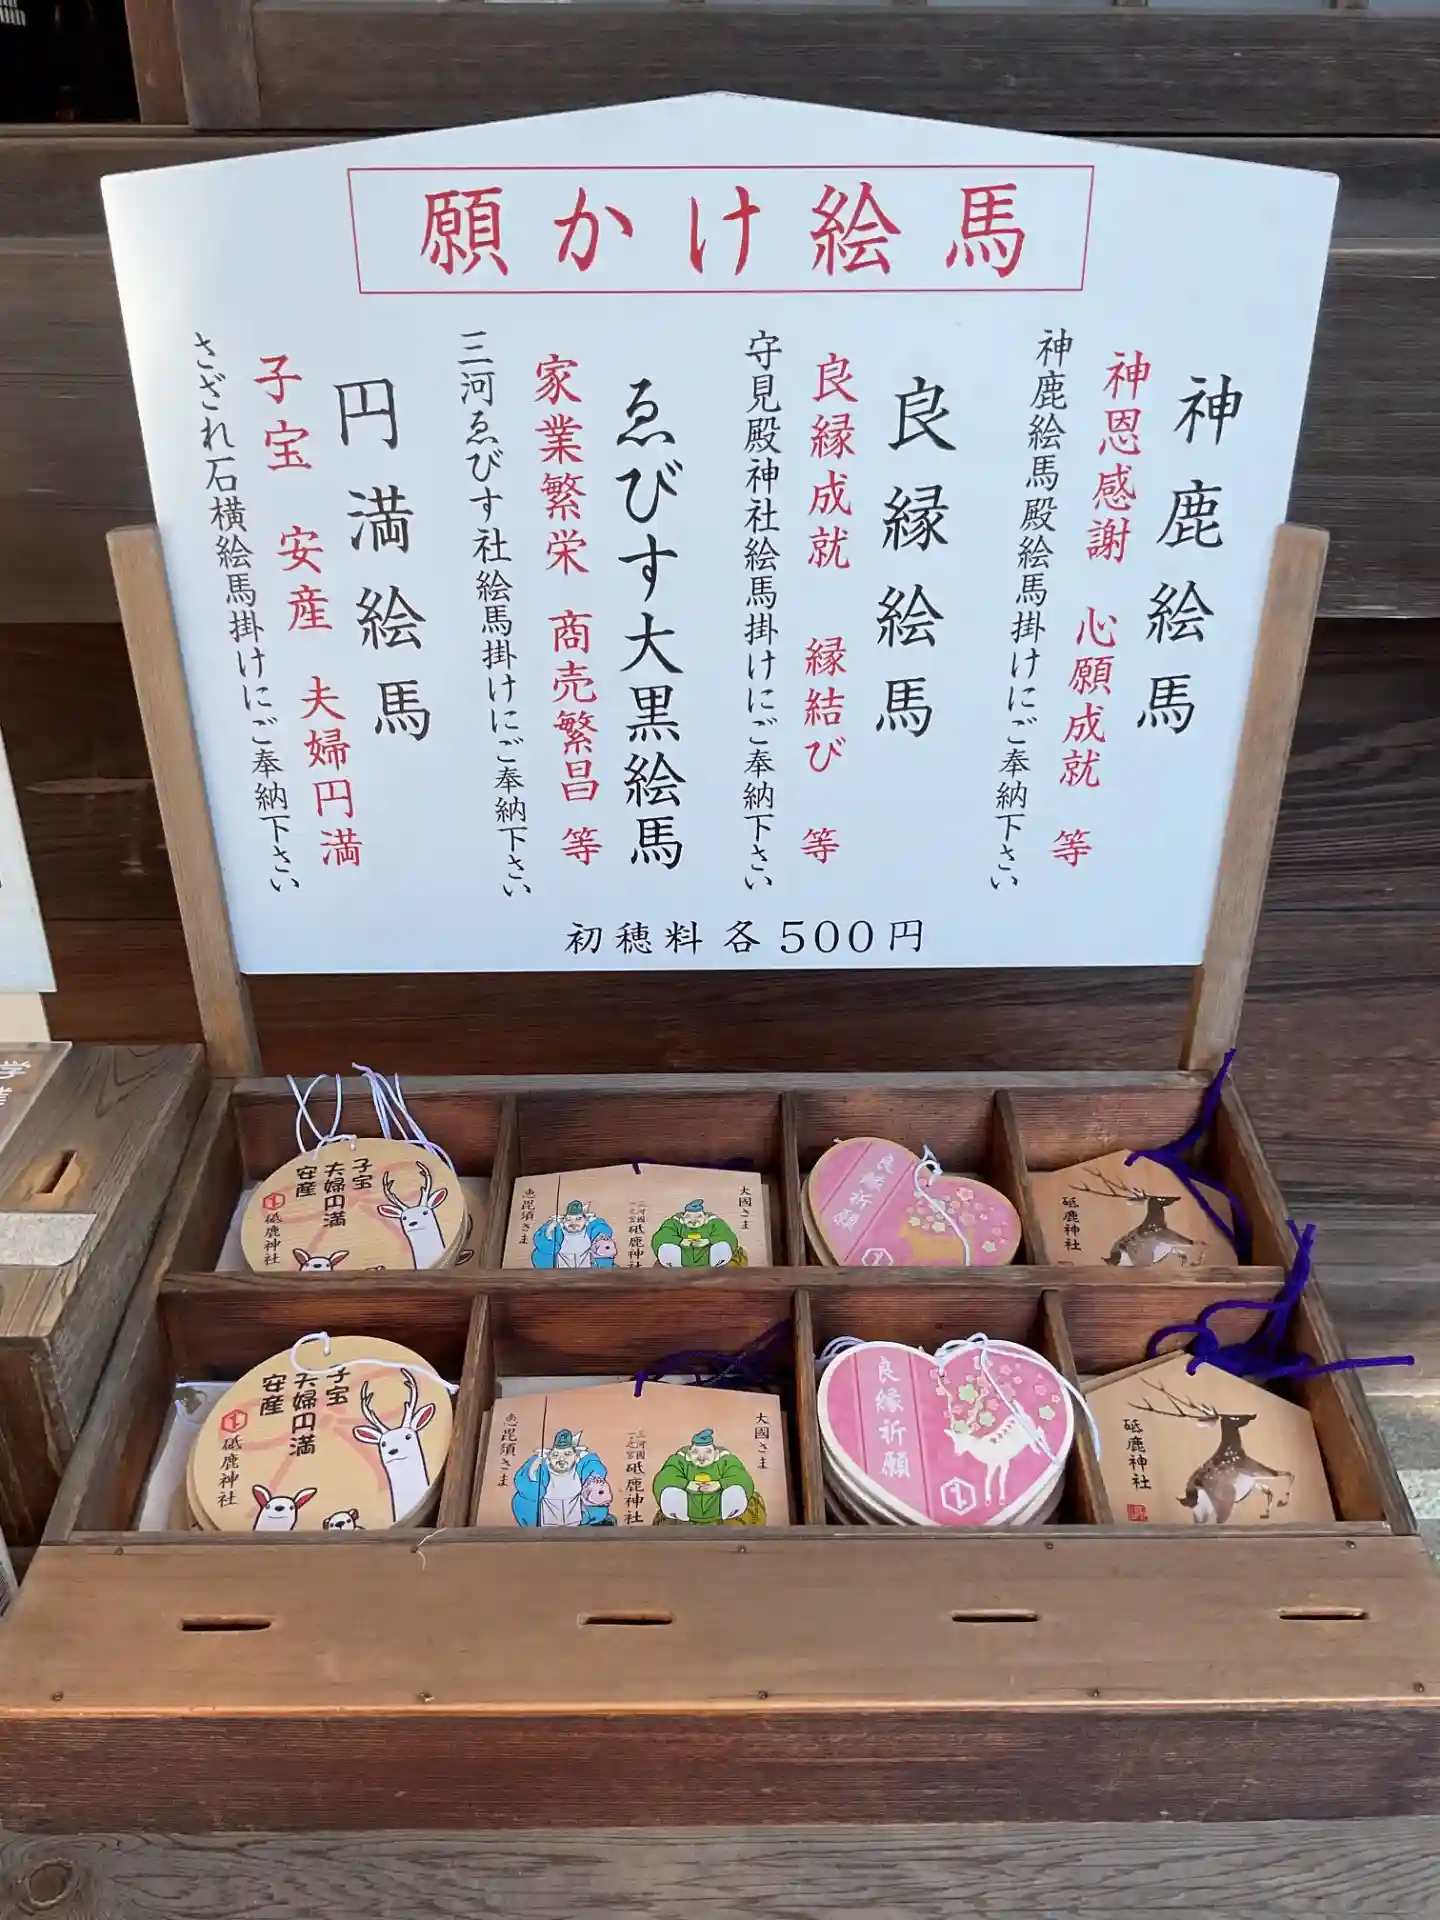 願かけ絵馬
神鹿絵馬
神恩感謝 心願成就 等
神鹿絵馬殿絵馬掛けにご奉納下さい
良縁絵馬
良縁成就 縁結び 等
守見殿神社絵馬掛けにご奉納下さい
ゑびす大黒絵馬
家業繁栄 商売繁昌 等
三河ゑびす社絵馬掛けにご奉納下さい
円満絵馬
子宝 安産 夫婦円満
さざれ石横絵馬掛けにご奉納下さい
初穂料 各500円
子宝
夫婦円満
安産
砥鹿神社
大國さま
三河國
一之宮
砥鹿神社
恵毘須さま
良縁祈願
砥鹿神社
子宝
夫婦円満
安産
砥鹿神社
大國さま
三河國
一之宮
砥鹿神社
恵毘須さま
良縁祈願
砥鹿神社
学